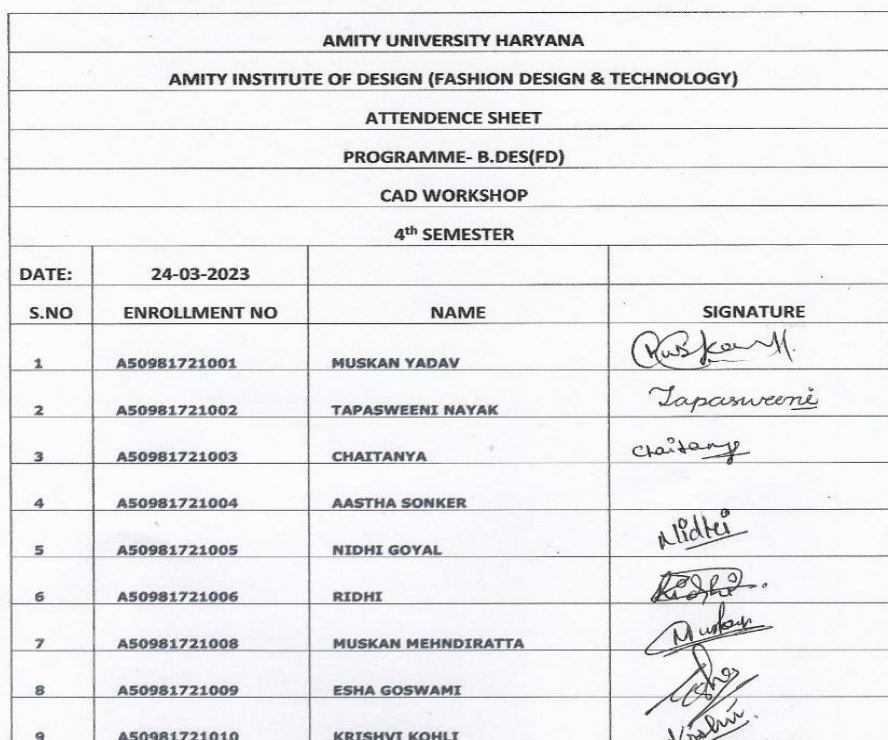 AMITY UNIVERSITY HARYANA
AMITY INSTITUTE OF DESIGN (FASHION DESIGN & TECHNOLOGY)
ATTENDENCE SHEET
PROGRAMME- B.DES(FD)
CAD WORKSHOP
4th SEMESTER
DATE: 24-03-2023
S.NO ENROLLMENT NO NAME SIGNATURE
1 A50981721001 MUSKAN YADAV Muskan
2 A50981721002 TAPASWEENI NAYAK Tapasweeni
3 A50981721003 CHAITANYA Chaitanya
4 A50981721004 AASTHA SONKER
5 A50981721005 NIDHI GOYAL Nidhi
6 A50981721006 RIDHI Ridhi
7 A50981721008 MUSKAN MEHNDIRATTA Muskan
8 A50981721009 ESHA GOSWAMI Esha
9 A50981721010 KRISHVI KOHLI